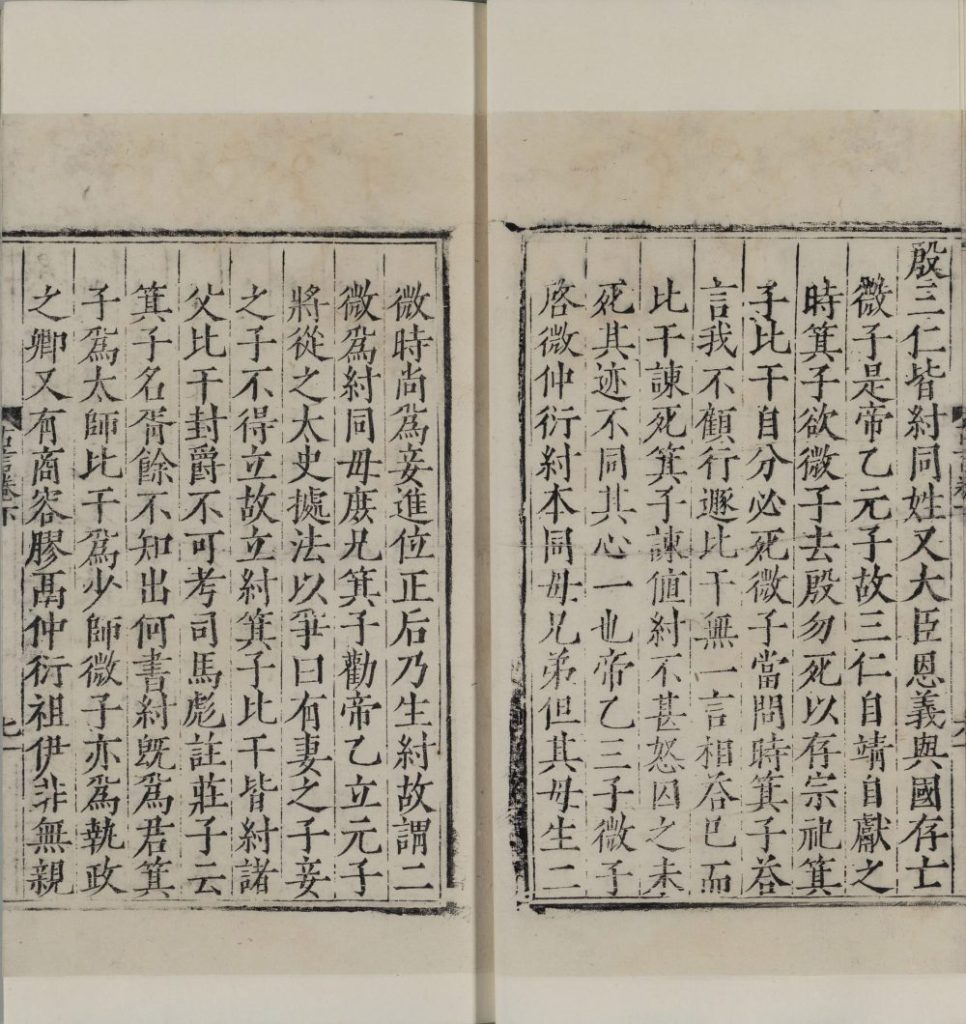 殷三仁皆紂同姓又大臣恩義與國存亡
微子是帝乙元子故三仁自靖自獻之
時箕子欲微子去殷勿死以存宗祀箕
子比干自分必死微子當問時箕子荅
言我不顧行遯比干無一言相荅已而
比干諫死箕子諫值紂不甚怒囚之未
死其迹不同其心一也帝乙三子微子
啓微仲衍紂本同母兄弟但其母生二
微時尚爲妾進位正后乃生紂故謂二
微爲紂同母庶兄箕子勸帝乙立元子
將從之太史據法以爭曰有妻之子妾
之子不得立故立紂箕子比干皆紂諸
父比干封爵不可考司馬彪註莊子云
箕子名胥餘不知出何書紂旣爲君箕
子爲太師比干爲少師微子亦爲執政
之卿又有商容膠鬲仲衍祖伊非無親